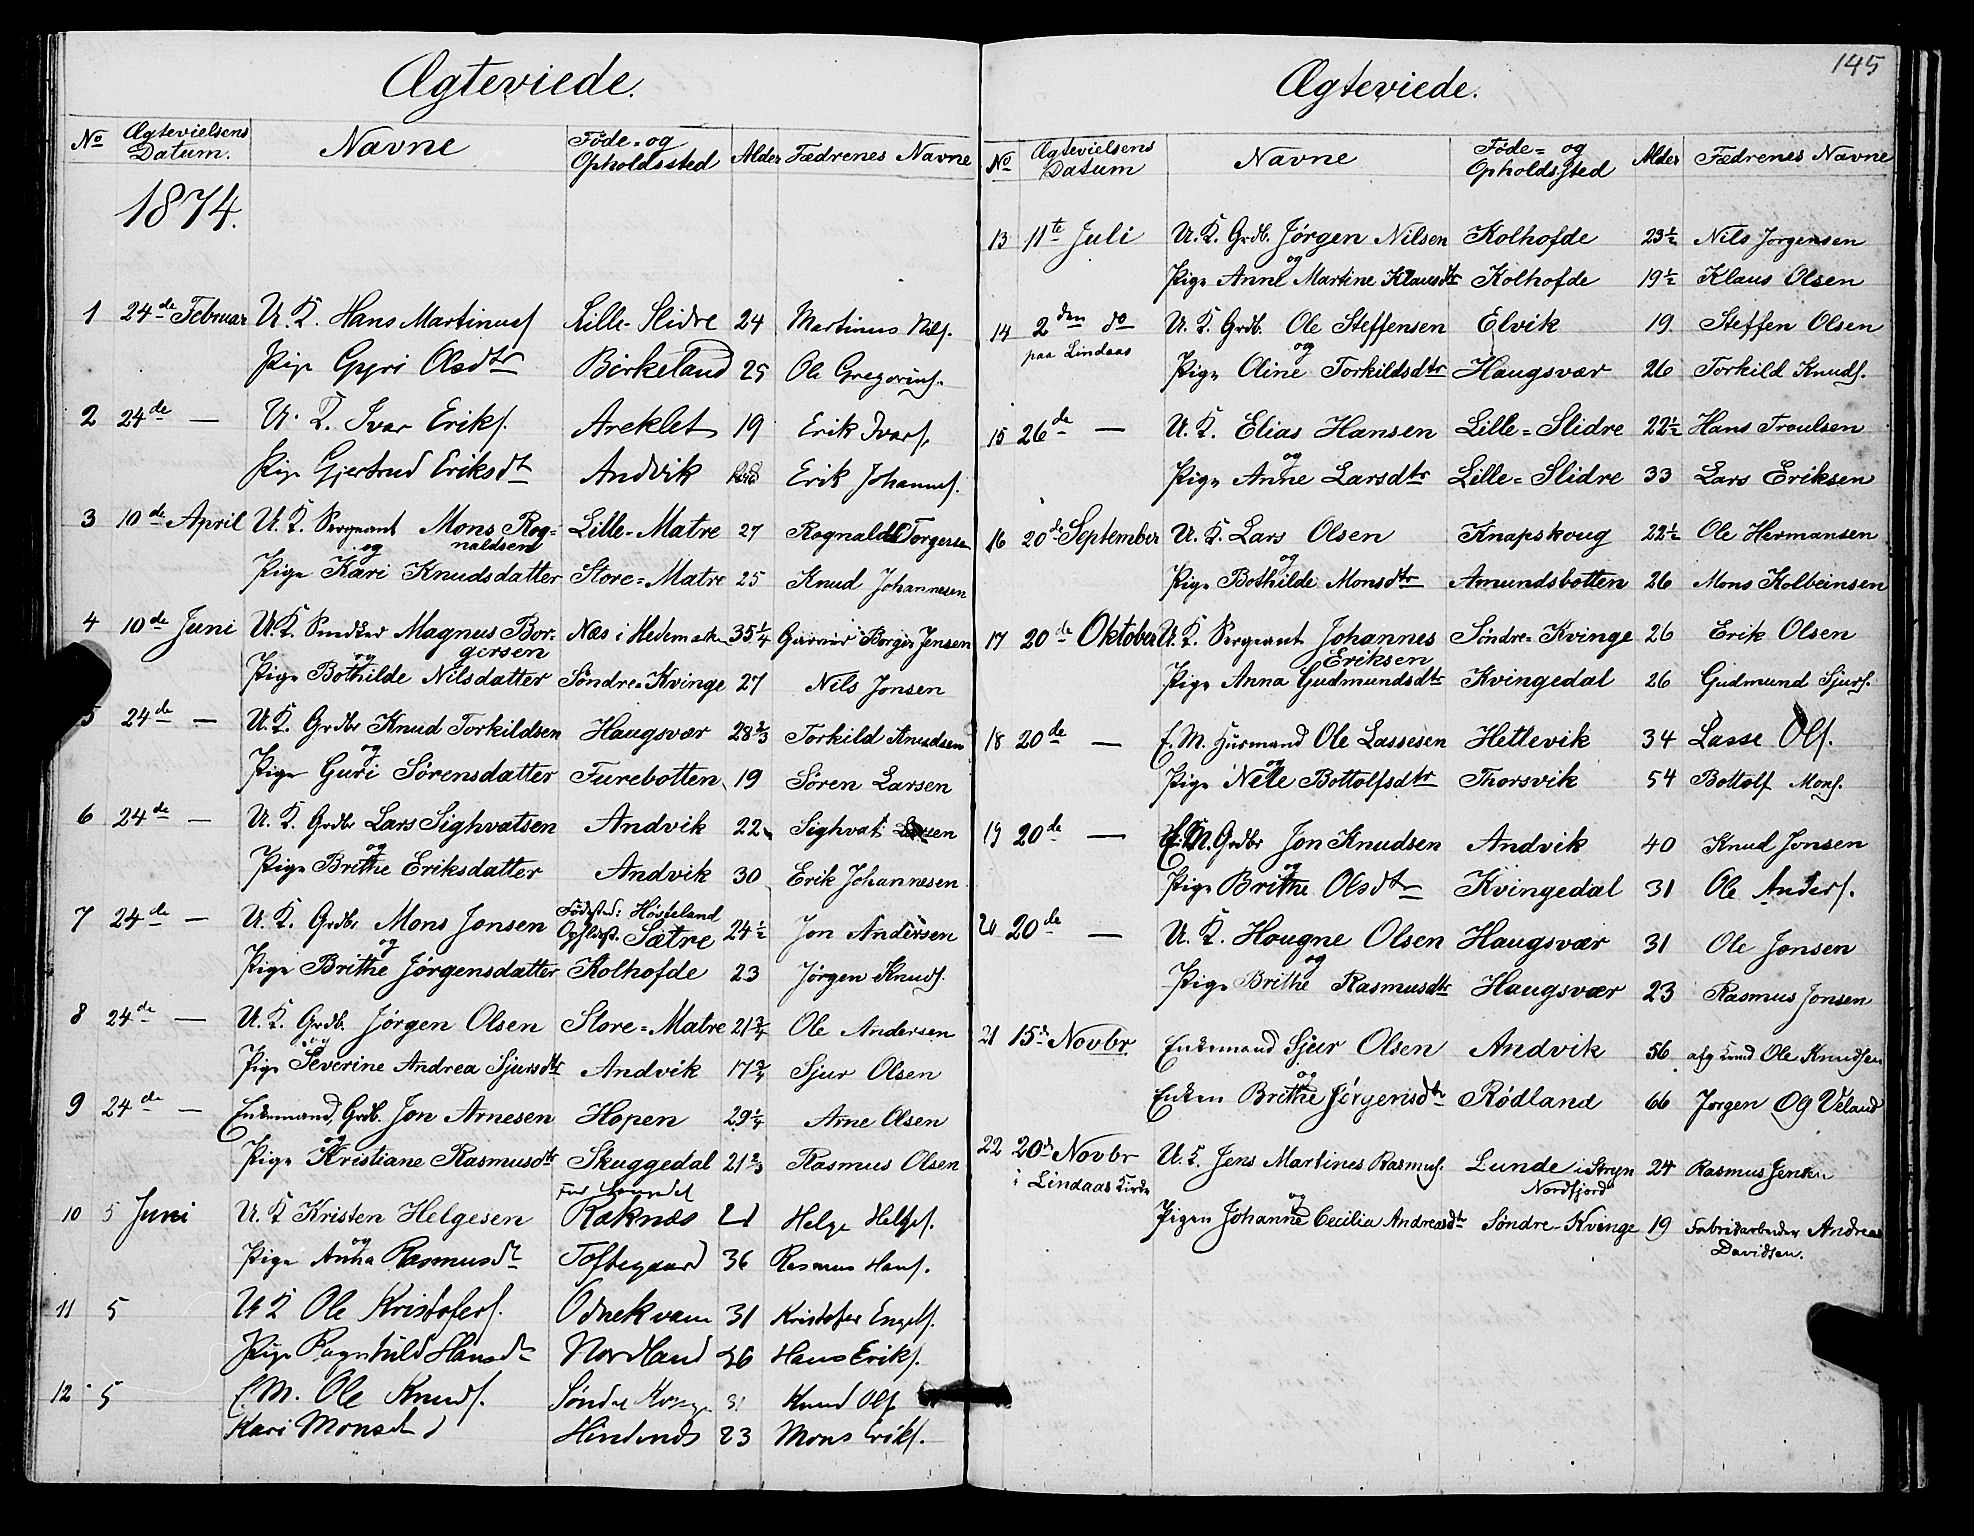 Ægteviede.
No Ægtevielsens Datum. Navne Føde- og Opholdssted Alder Fædrenes Navne
1874.
1 24de Februar U. K. Hans Martinusf Lille-Slidre 24 Martinus Nilsf.
Pige Gyri Olsdtr Birkeland 25 Ole Gregoriusf.
2 24de — U. K. Ivar Eriksf. Areklet 19 Erik Ivarsf.
Pige Gjertrud Eriksdt Andvik Erik Johannesf.
3 10de April U. K. Sergeant Mons Rognaldsen Lille-Matre 27 Rognald Torgersen
og
Pige Kari Knudsdatter Store-Matre 25 Knud Johannesen
4 10de Juni U. K. Snedker Magnus Borgersen Næs i Hedemarken 35 1/4 Borger Jensen
og
Pige Bothilde Nilsdatter Søndre-Kvinge 27 Nils Jonsen
5 24de — U. K. Grdbr Knud Torkildsen Haugsvær 28 2/3 Torkild Knudsen
og
Pige Guri Sørensdatter Furebotten 19 Søren Larsen
6 24de — U. K. Grdbr Lars Sighvatsen Andvik 22 Sighvat
og
Pige Brithe Eriksdatter Andvik 30 Erik Johannesen
7 24de — U. K. Grdbr Mons Jonsen Fødested: Høsteland Opholdsst. Sætre 24 1/2 Jon Andersen
og
Pige Brithe Jørgensdatter Kolhofde 23 Jørgen Knudsf.
8 24de — U. K. Grdb. Jørgen Olsen Store-Matre 21 3/4 Ole Andersen
og
Pige Severine Andrea Sjursdtr Andvik 17 3/4 Sjur Olsen
9 24de — Enkemand, Grdb. Jon Arnesen Hopen 29 1/4 Arne Olsen
og
Pige Kristiane Rasmusdtr Skuggedal 21 2/3 Rasmus Olsen
10 5 Juni U. K Kristen Helgesen Raknæs 21 Helge Helgesf.
og
Pige Anna Rasmusdt Toftegaard 36 Rasmus Hansf.
11 5 U K Ole Kristofersf. Odnekvam 31 Kristofer Engelsf.
Pige Ragnhild Hansdt Nordland 26 Hans Eriksf.
12 5 E. M. Ole Knudsf. Knud Olsf
Kari Monsdt Hindenes 23 Mons Eriksf.
145
Ægteviede.
No Ægtevielsens Datum Navne Føde= og Opholdssted Alder Fædrenes Navne
13 11te Juli U. K. Grdb. Jørgen Nilsen Kolhofde 23 1/2 Nils Jørgensen
og
Pige Anne Martine Klausdtr Kolhofde 19 1/2 Klaus Olsen
14 2den do U. K. Grdb. Ole Steffensen Elvik 19 Steffen Olsen
paa Lindaas og
Pige Oline Torkildsdtr Haugsvær 26 Torkild Knudsf.
15 26de — U. K. Elias Hansen Lille-Slidre 22 1/2 Hans Troulsen
og
Pige Anne Larsdtr Lille-Slidre 33 Lars Eriksen
16 20de September U. K. Lars Olsen Knapskoug 22 1/2 Ole Hermansen
og
Pige Bothilde Monsdtr Amundsbotten 26 Mons Kolbeinsen
17 20de Oktober U. K. Sergeant Johannes Eriksen Søndre-Kvinge 26 Erik Olsen
Pige Anna Gudmundsdtr Kvingedal 26 Gudmund Sjursf.
18 20de — E. M. Husmand Ole Lassesen Hettevik 34 Lasse Olsf.
og
Pige Nele Bottolfsdtr Thorsvik 54 Bottolf Monsf.
19 20de — E. M. Grdbr Jon Knudsen Andvik 40 Knud Jonsen
og
Pige Brithe Olsdtr Kvingedal 31 Ole Andersf.
20 20de — U. K. Hougne Olsen Haugsvær 31 Ole Jonsen
og
Pige Brithe Rasmusdtr Haugsvær 23 Rasmus Jonsen
21 15de Novbr Enkemand Sjur Olsen Andvik 56 Ole Knudsen
og
Enken Brithe Jørgensdtr Rødland 66 Jørgen
22 20de Novbr U. K. Jens Martines Rasmusf. Lunde i Stryn Nordfjord 24 Rasmus Jensen
i Lindaas Kirke
og
Pigen Johanne Cecilia Andreasdtr Søndre-Kvinge 19 Fabrikarbeider Andreas Davidsen.